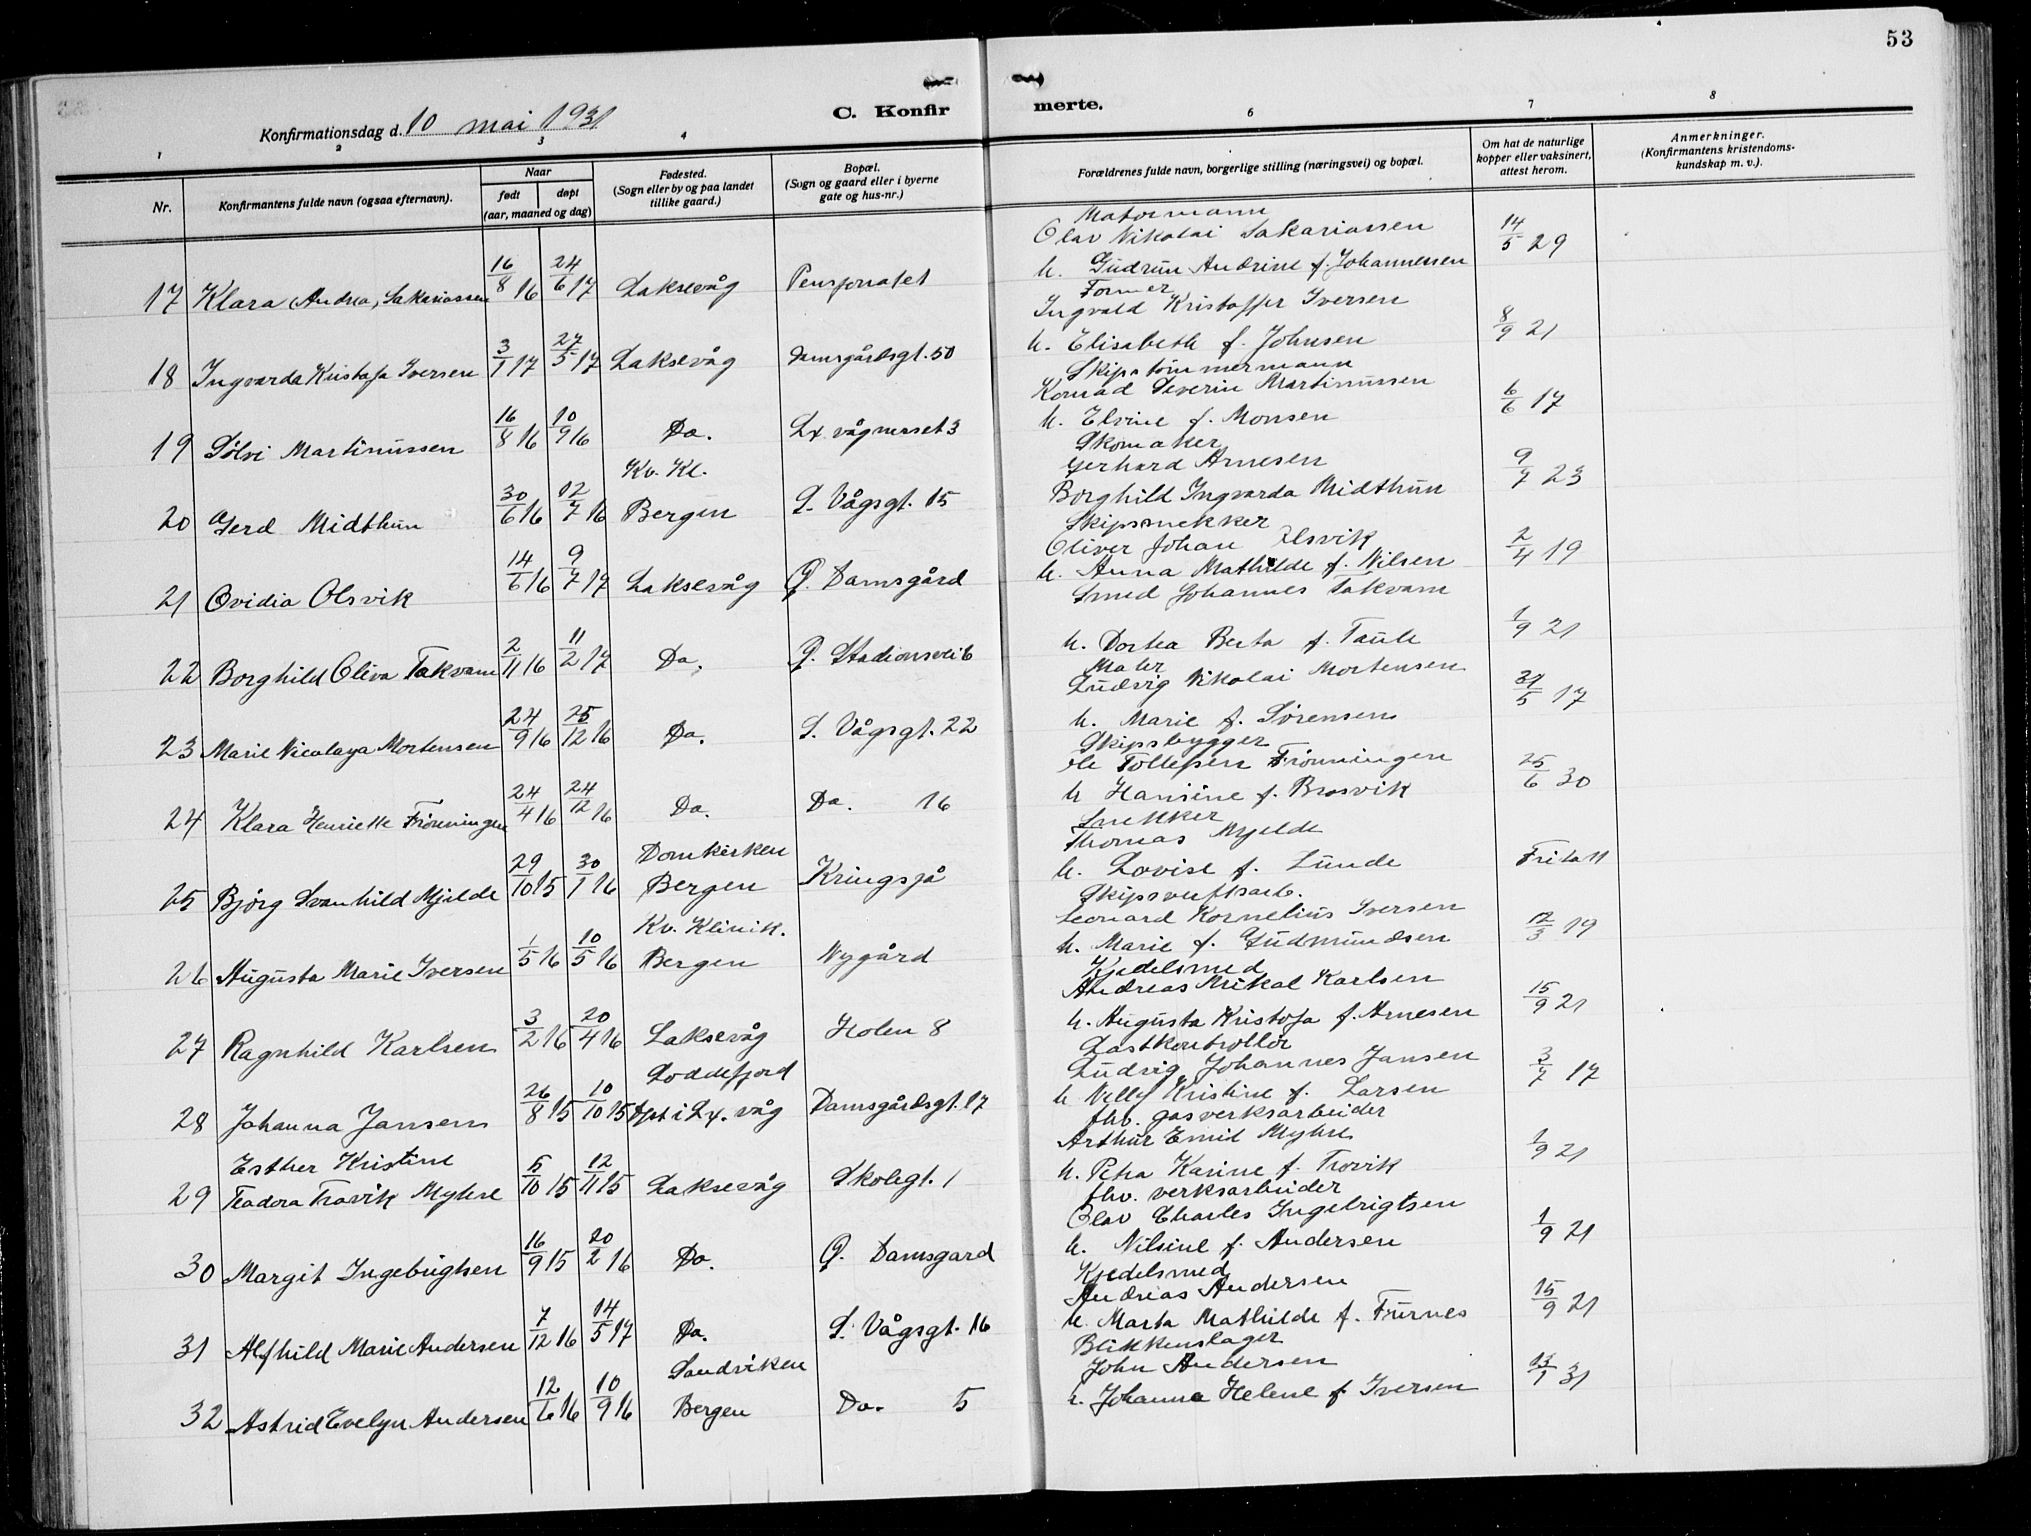 53
Konfirmationsdag d. 10 mai 1931
C. Konfirmerte.
1 2 3 4 6 7 8
Nr.
Konfirmantens fulde navn (ogsaa efternavn).
Naar
født døpt
(aar, maaned og dag)
Fødested.
(Sogn eller by og paa landet
tillike gaard.)
Bopæl.
(Sogn og gaard eller i byerne
gate og hus-nr.)
Forældrenes fulde navn, borgerlige stilling (næringsvei) og bopæl.
Om hat de naturlige
kopper eller vaksinert,
attest herom.
Anmerkninger.
(Konfirmantens kristendoms-
kundskap m. v.).
Motormann
Olav Nikolai Sakariassen
h. Gudrun Andrine f. Johannessen
17 Klara Andrea, Sakariassen 16/8 16 24/6 17 Laksevåg Pensjonatet 14/5 29
Former
Ingvald Kristoffer Iversen
h. Elisabeth f. Johnsen
18 Ingvarda Kristofa Iversen 3/1 17 27/5 17 Laksevåg Damsgårdsgt. 50 8/9 21
Skipstømmermann
Konrad Severin Martinussen
h. Elvine f. Monsen
19 Sølvi Martinussen 16/8 16 10/9 16 Do. Lx. vågnesset 3 6/6 17
Skomaker
Gerhard Arnesen
Borghild Ingvarda Midthun
Kv. Kl.
20 Gerd Midthun 30/6 16 12/7 16 Bergen S. Vågsgt. 15 9/7 23
Skipssnekker
Oliver Johan Olsvik
h. Anna Mathilde f. Nilsen
21 Ovidia Olsvik 14/6 16 9/7 17 Laksevåg G. Damsgård 2/4 19
Smed Johannes Takvam
h. Dortea Berta f. Taule
22 Borghild Oliva Takvam 2/11 16 11/2 17 Do. G. Stadionsvei 6 1/9 21
Maler
Ludvig Nikolai Mortensen
h. Marie f. Sørensen
23 Marie Nicolaya Mortensen 24/9 16 25/12 16 Do. S. Vågsgt. 22 31/5 17
Skipsbygger
Ole Tollefsen Frønningen
h Hansine f. Brosvik
24 Klara Henriette Frønningen 24/4 16 24/12 16 Do. Do. 16 25/6 30
Snekker
Thomas Mjelde
h. Lovise f. Lunde
Domkirken
25 Bjørg Svanhild Mjelde 29/10 15 30/1 16 Bergen Kringsjå Fritatt
Skipsverftsarb.
Leonard Kornelius Iversen
h. Marie f. Gudmundsen
Kv. Klinik.
26 Augusta Marie Iversen 1/5 16 10/5 16 Bergen Nygård 12/3 19
Kjedelsmed
Andreas Mikal Karlsen
h. Augusta Kristofa f. Arnesen
27 Ragnhild Karlsen 3/2 16 20/4 16 Laksevåg Holen 8 15/9 21
Lastkontrollør
Ludvig Johannes Jansen
h Nelly Kristine f. Larsen
Loddefjord
28 Johanna Jansen 26/8 15 10/10 15 Døpt i Lx. våg Damsgårdsgt. 17 3/7 17
fhv. gasverksarbeider
Arthur Emil Myhre
h. Petra Karine f. Trovik
Esther Kristine
29 Teodora Trovik Myhre 5/10 15 12/11 15 Laksevåg Skolegt. 1 1/9 21
fhv. verksarbeider
Olav Charles Ingebrigtsen
h. Nilsine f. Andersen
30 Margit Ingebrigtsen 16/9 15 20/2 16 Do. G. Damsgard 1/9 21
Kjedelsmed
Andreas Andersen
h. Marta Mathilde f. Furnes
31 Alfhild Marie Andersen 7/12 16 14/5 17 Do. S. Vågsgt. 16 15/9 21
Blikkenslager
John Andersen
h. Johanna Helene f. Iversen
Sandviken
32 Astrid Evelyn Andersen 12/6 16 10/9 16 Bergen Do. 5 13/1 31